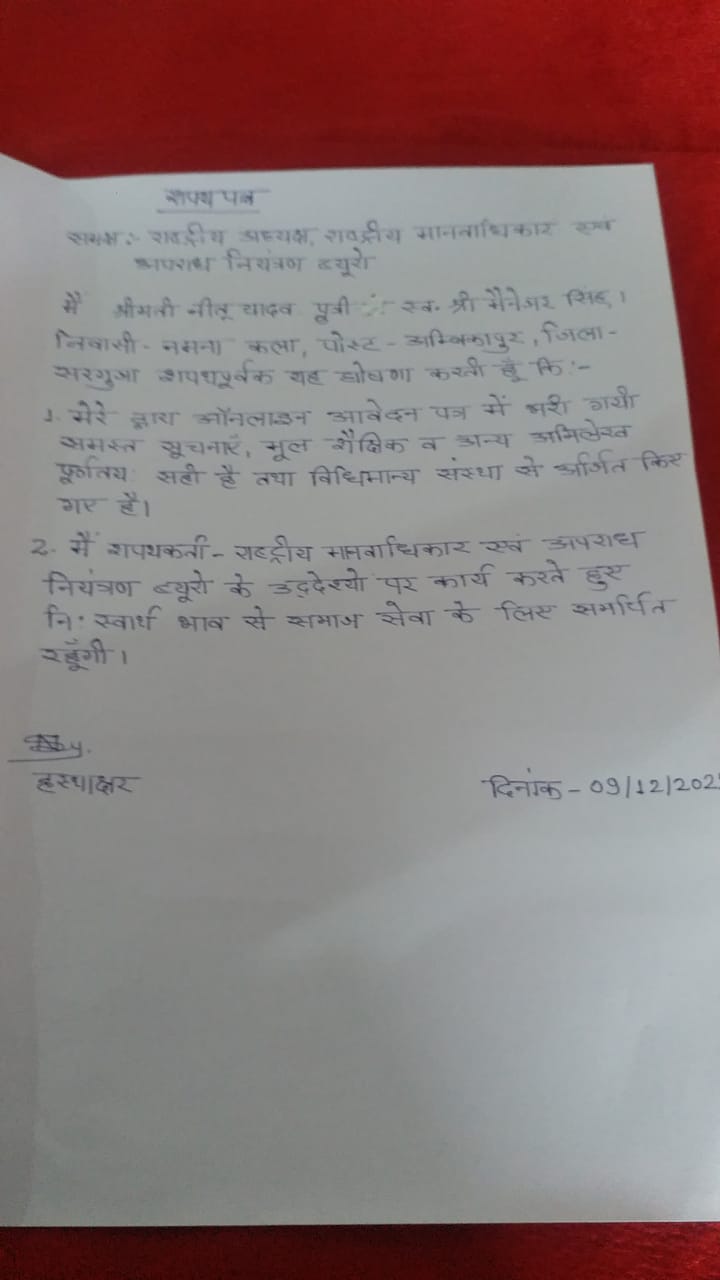 शपथ पत्र
समक्ष :- राष्ट्रीय अध्यक्ष, राष्ट्रीय मानवाधिकार एवं
अपराध नियंत्रण ब्यूरो
मैं श्रीमती नीतू यादव पुत्री स्व. श्री मैनेजर सिंह,
निवासी - नमना कला, पोस्ट - अम्बिकापुर, जिला -
सरगुजा शपथपूर्वक यह घोषणा करती हूँ कि :-
1. मेरे द्वारा ऑनलाइन आवेदन पत्र में भरी गयी
समस्त सूचनाएँ, मूल शैक्षिक व अन्य अभिलेख
पूर्णतयः सही है तथा विधिमान्य संस्था से अर्जित किए
गए है।
2. मैं शपथकर्ता - राष्ट्रीय मानवाधिकार एवं अपराध
नियंत्रण ब्यूरो के उद्देश्यो पर कार्य करते हुए
नि: स्वार्थ भाव से समाज सेवा के लिए समर्पित
रहूँगी।
हस्थाक्षर
दिनांक - 09/12/202